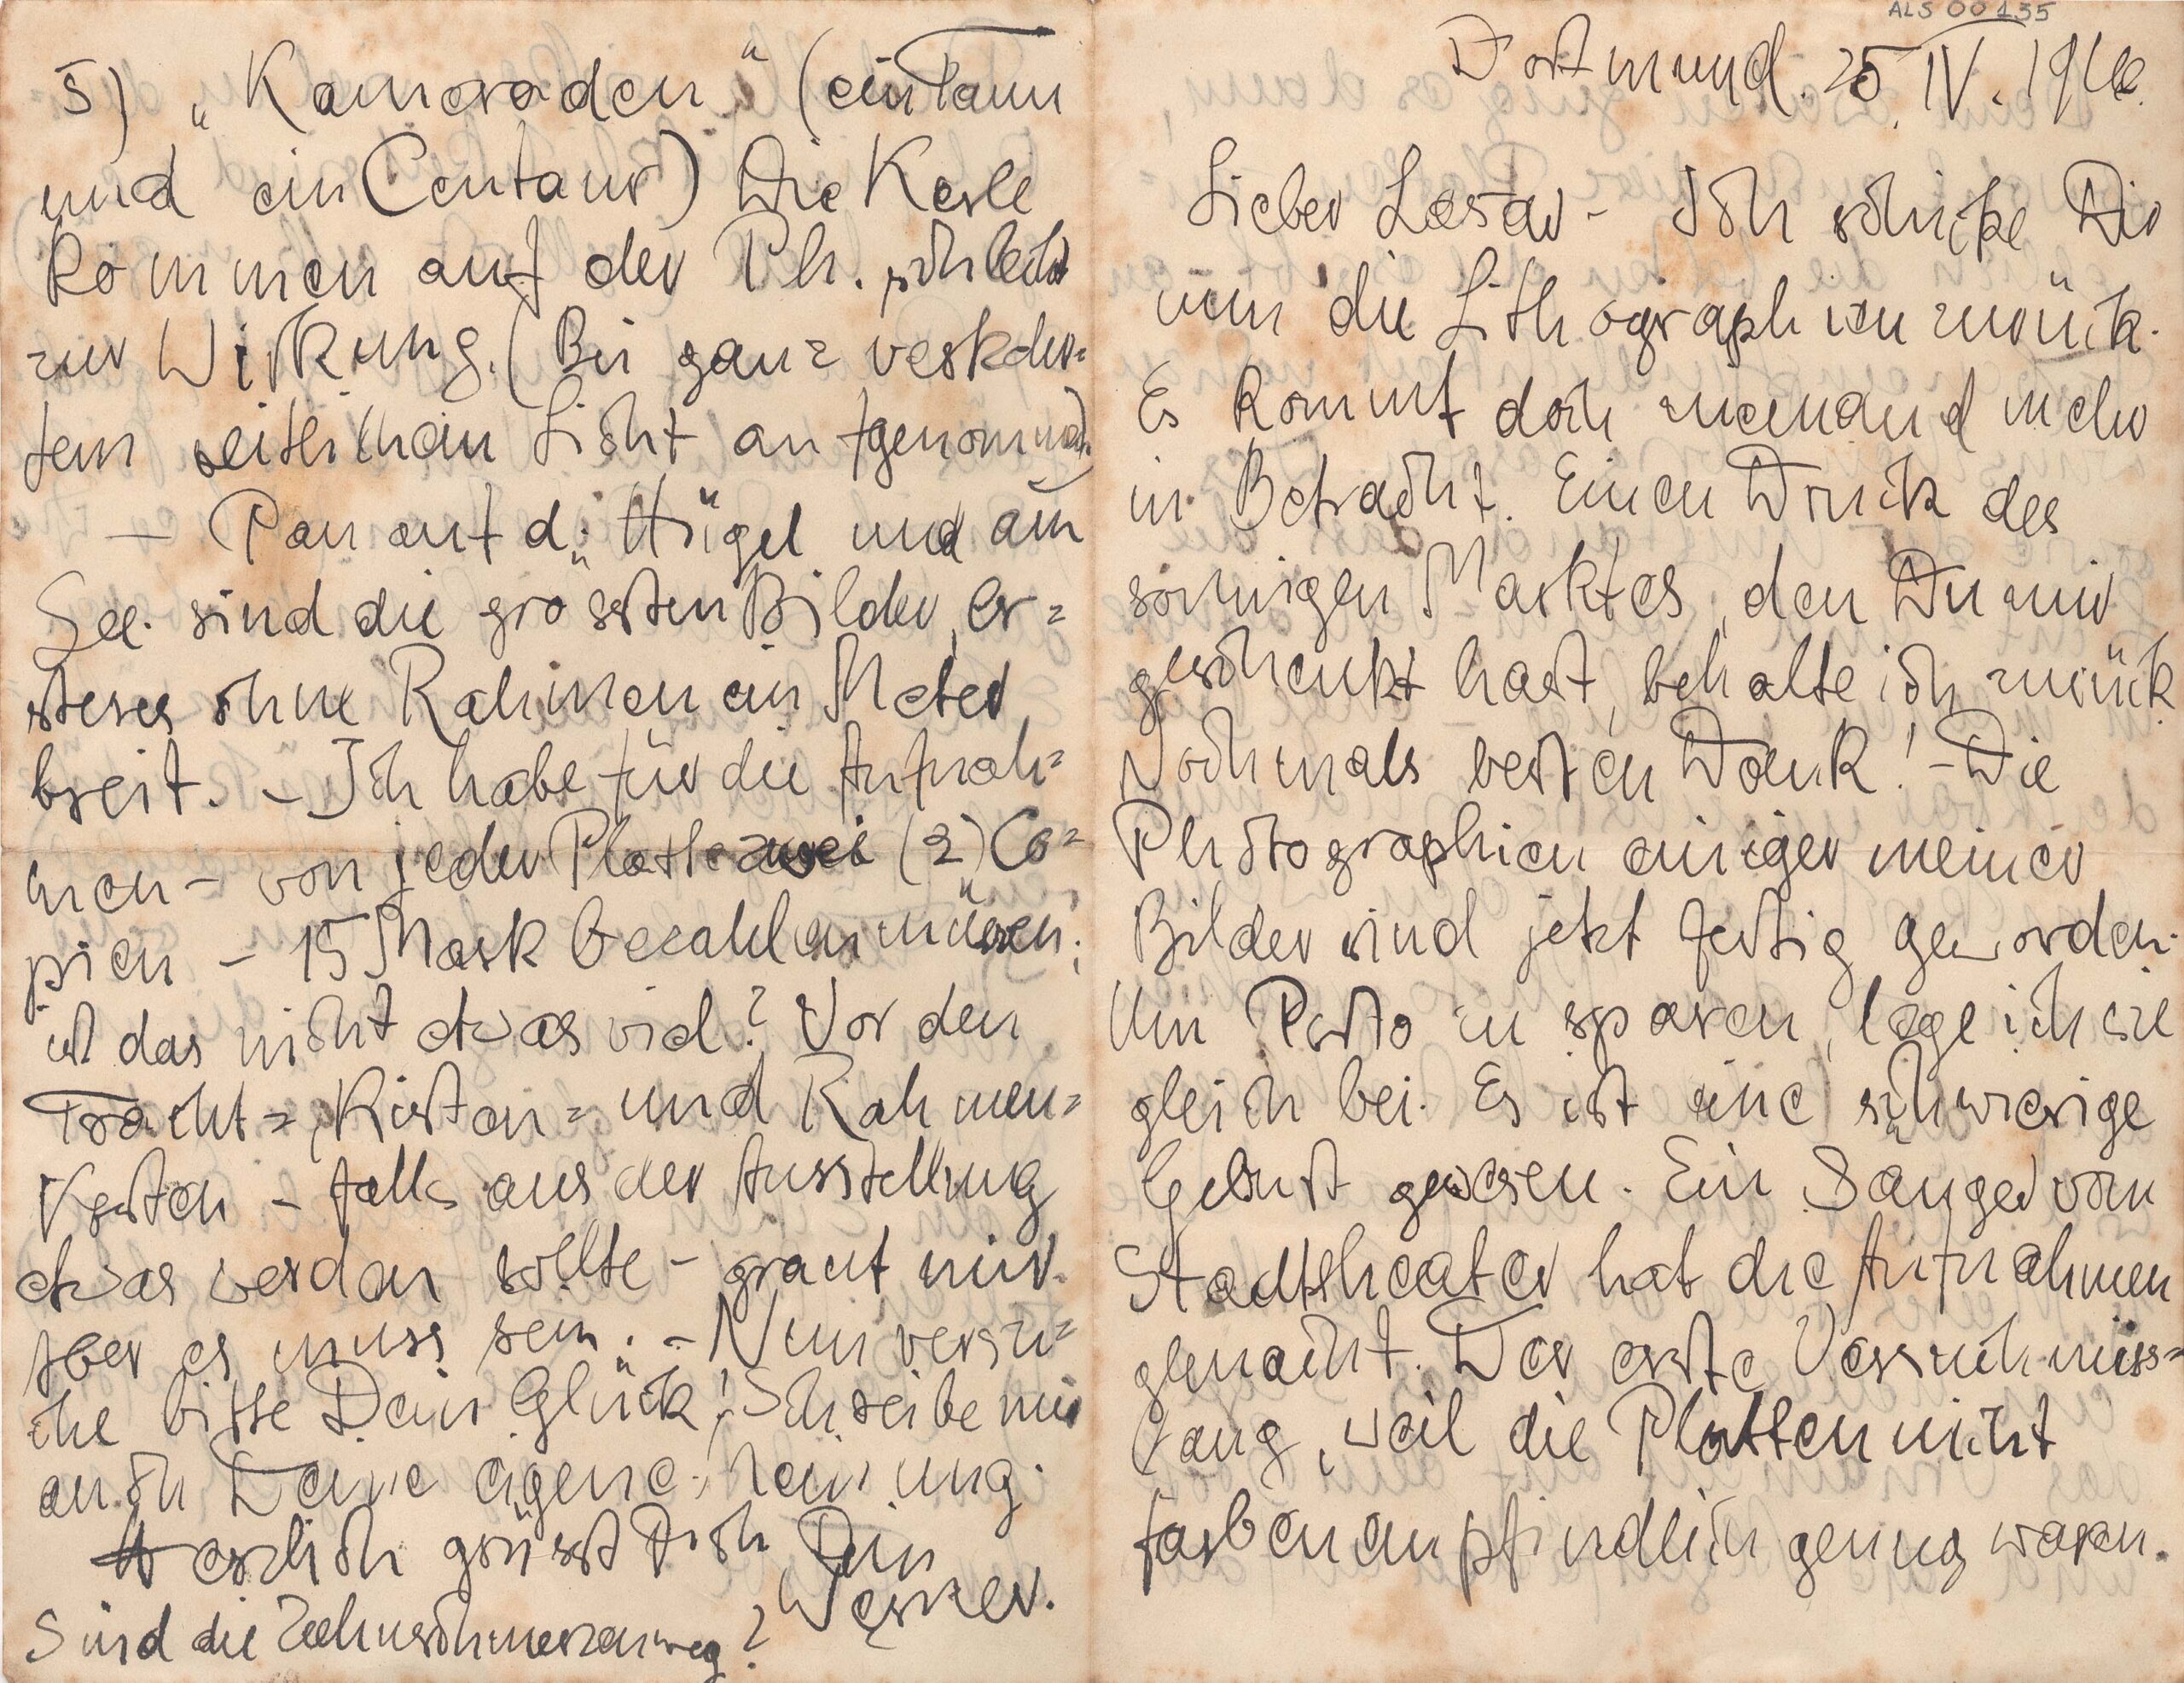 ALS 00135
Dortmund. 25. IV. 1916.
Lieber Lasar - Ich schicke Dir
nun die Lithographien zurück.
Es kommt doch niemand mehr
in Betracht. Einen Druck des
sonnigen Marktes, den Du mir
geschenkt hast, behalte ich zurück
Nochmals besten Dank! - Die
Photographien einiger meiner
Bilder sind jetzt fertig geworden.
Um Porto zu sparen, lege ich sie
gleich bei. Es ist eine schwierige
Geburt gewesen. Ein Sänger vom
Stadttheater hat die Aufnahmen
gemacht. Der erste Versuch miss=
lang, weil die Platten nicht
farbenempfindlich genug waren.
5) „Kameraden" (ein Faun
und ein Centaur) Die Kerle
kommen auf der Ph. schlecht
zur Wirkung. (Bei ganz
tem seitlichen Licht aufgenommen)
- Pan auf d. „Hügel" und am
„See" sind die grössten Bilder, er=
steres ohne Rahmen ein Meter
breit. - Ich habe für die Aufnah=
men - von jeder Platte zwei (2) Co=
pien - 15 Mark bezahlen müssen;
ist das nicht etwas viel? Vor den
Fracht=, Kisten= und Rahmen=
Kosten - falls aus der Ausstellung
etwas werden sollte - graut mir.
Aber es muss sein. - Nun versu=
che bitte Dein Glück! Schreibe mir
auch Deine eigene Meinung.
Herzlich grüsst Dich Dein
Werner.
Sind die Zahnschmerzen weg?